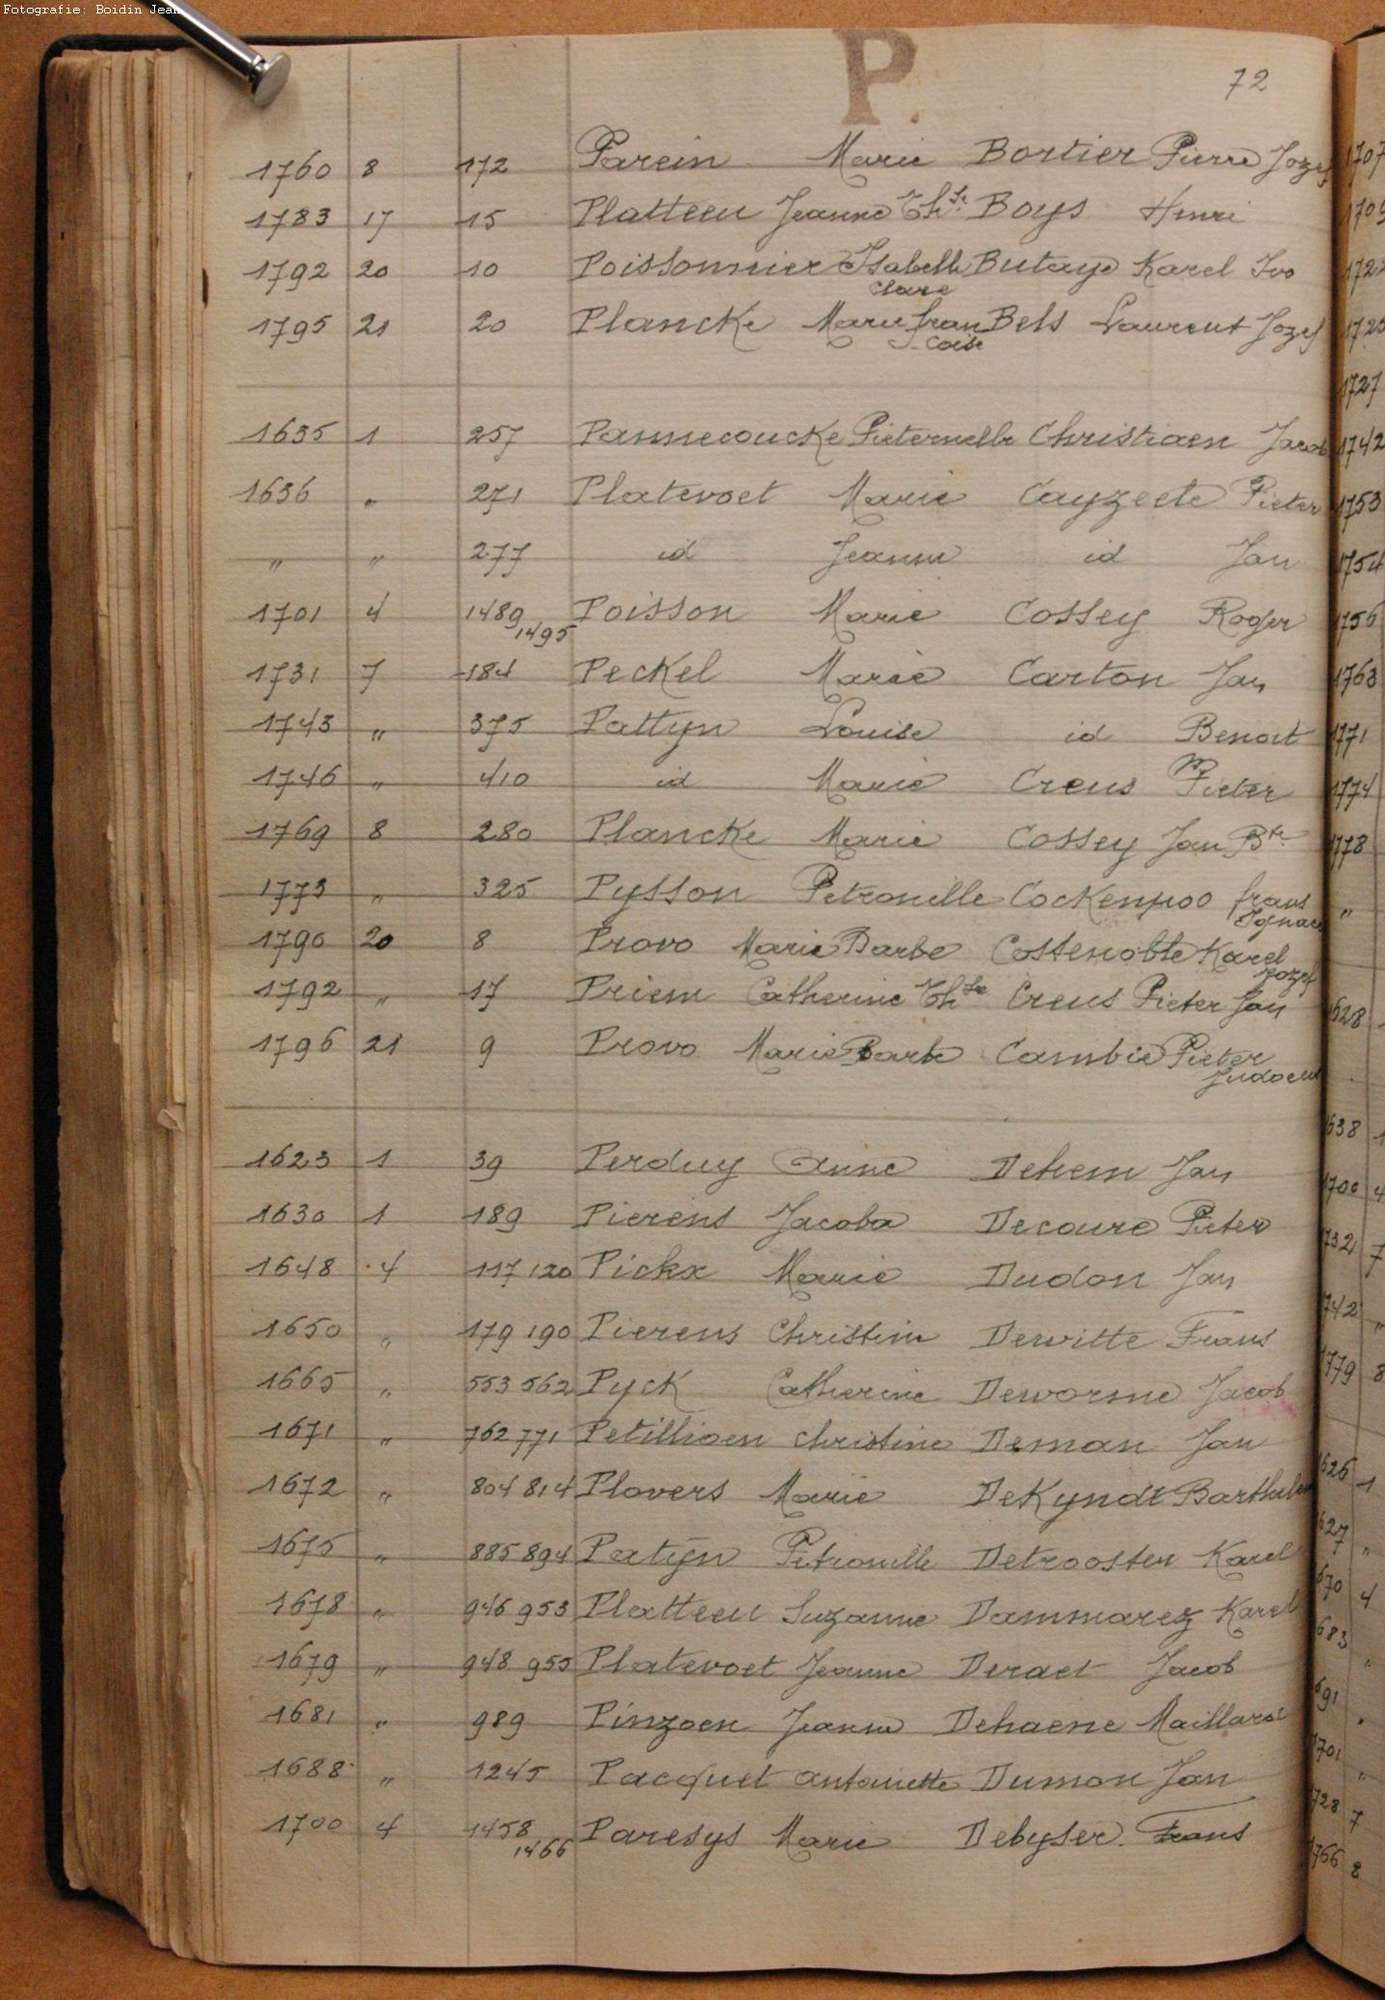 Fotografie: Boidin Jean
P.
72
1760 8 172 Parein Marie Bortier Pierre Jozef
1783 17 15 Platteeu Jeanne Th.se Boys Henri
1792 20 10 Poissonnier Isabelle Butaye Karel Ivo
Claire
1795 21 20 Plancke Marie fran Bels Laurent Jozef
coise
1635 1 257 Pannecoucke Pieternelle Christiaen Jacob
1636 " 271 Platevoet Marie Cayzeele Pieter
" " 277 id Jeanne id Jan
1701 4 1489 Poisson Marie Cossey Roger
1495
1731 7 184 Peckel Marie Carton Jan
1743 " 375 Pattyn Louise id Benoit
1746 " 410 id Marie Creus Pieter
1769 8 280 Plancke Marie Cossey Jan Bte
1773 " 325 Pysson Petronille Cockenpoo frans
Ignace
1790 20 8 Provo Marie Barbe Costenoble Karel
Jozef
1792 " 17 Priem Catherine Th.se Creus Pieter Jan
1796 21 9 Provo Marie Barbe Cambie Pieter
Judocus
1623 1 39 Perduy Anne Dehem Jan
1630 1 189 Pierens Jacoba Decoure Pieter
1648 4 117 120 Pickx Marie Dudon Jan
1650 " 179 190 Pierens Christine Dewitte Frans
1665 " 553 562 Pyck Catherine Deworme Jacob
1671 " 762 771 Petillioen Christine Deman Jan
1672 " 804 814 Plovers Marie DeKyndt
1675 " 885 894 Patyn Petronille Detrooster Karel
1678 " 946 953 Platteeu Suzanne Dammarez Karel
1679 " 948 955 Platevoet Jeanne Deraet Jacob
1681 " 989 Pinzoen Jeanne Dehaene Maillard
1688 " 1245 Pacquet Antoinette Dumon Jan
1700 4 1458 Paresys Marie Debyser Frans
1466
1707
1742
1753
1754
1756
1763
1771
1774
1778
"